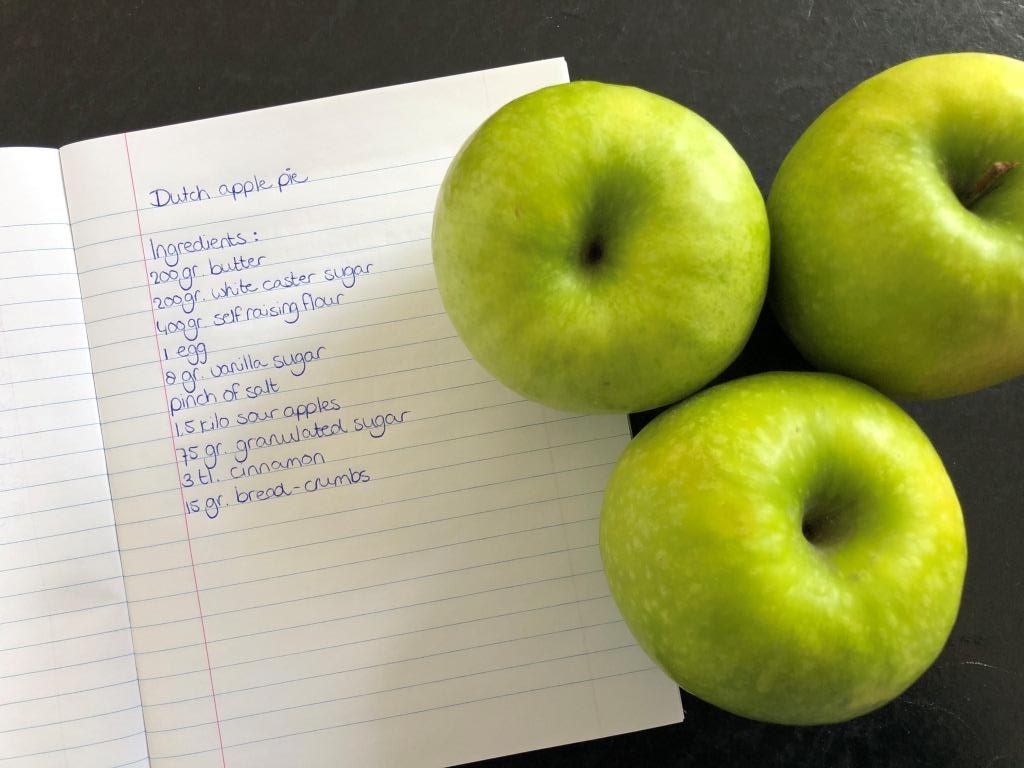 Dutch apple pie
Ingredients:
200 gr. butter
200 gr. white caster sugar
400 gr. self raising flour
1 egg
8 gr. vanilla sugar
pinch of salt
1,5 kilo sour apples
75 gr. granulated sugar
3 tl. cinnamon
15 gr. bread-crumbs